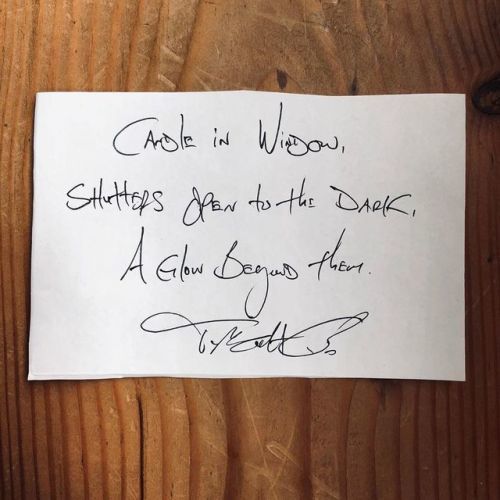 Candle in Window,
Shutters Open to the Dark,
A Glow Beyond Them.